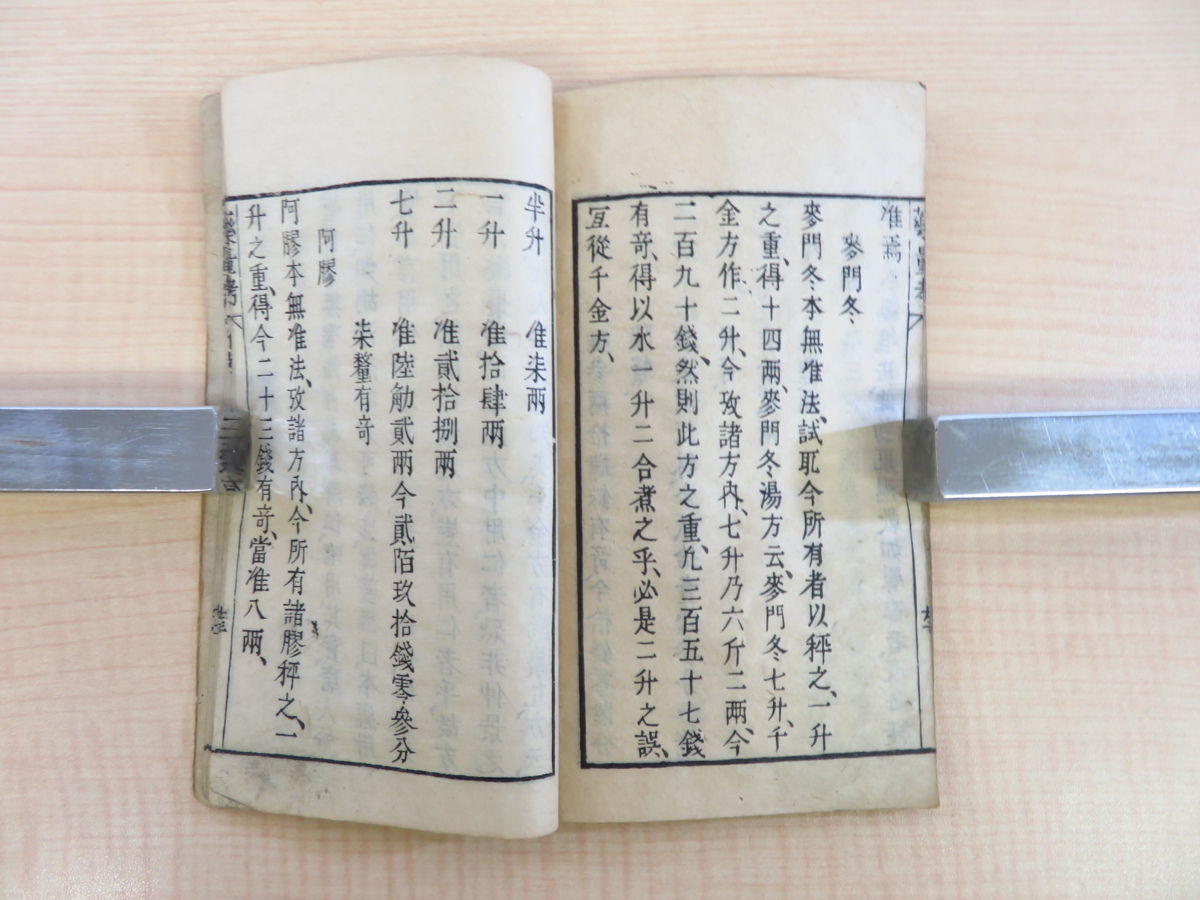 准焉
麥門冬
麥門冬本無准法、試耴今所有者以秤之、一升
之重、得十四兩、麥門冬湯方云、麥門冬七升、千
金方作二升、今攷諸方內、七升乃六斤二兩、今
二百九十錢、然則此方之重、九三百五十七錢
有竒、得以水一升二合煮之乎、必是二升之誤、
冝從千金方、
半升 准柒兩
一升 准拾肆兩
二升 准貳拾捌兩
七升 准陸觔貳兩今貳陌玖拾錢零參分
柒釐有竒
阿膠
阿膠本無准法、攷諸方內、今所有諸膠秤之、一
升之重、得今二十三錢有竒、當准八兩、
藥量考